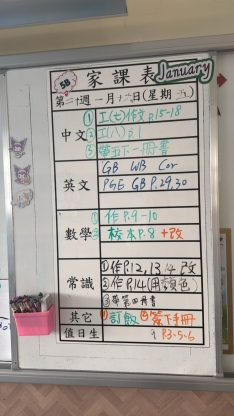 5B
家課表
January
第二十週 一月十六日(星期五)
中文
①工(七)作文 P.15-18
②工(八)P.1
③帶五下一冊書
英文
GB WB Cor
PGE GB P.29,30
數學
①作P.9-10
②校本P.8 +改
常識
①作P.12,13,14 改
②作P.14(用顏色)
③帶第四冊書
其它
①訂飯 ②簽手冊
值日生
9 R3-5-6